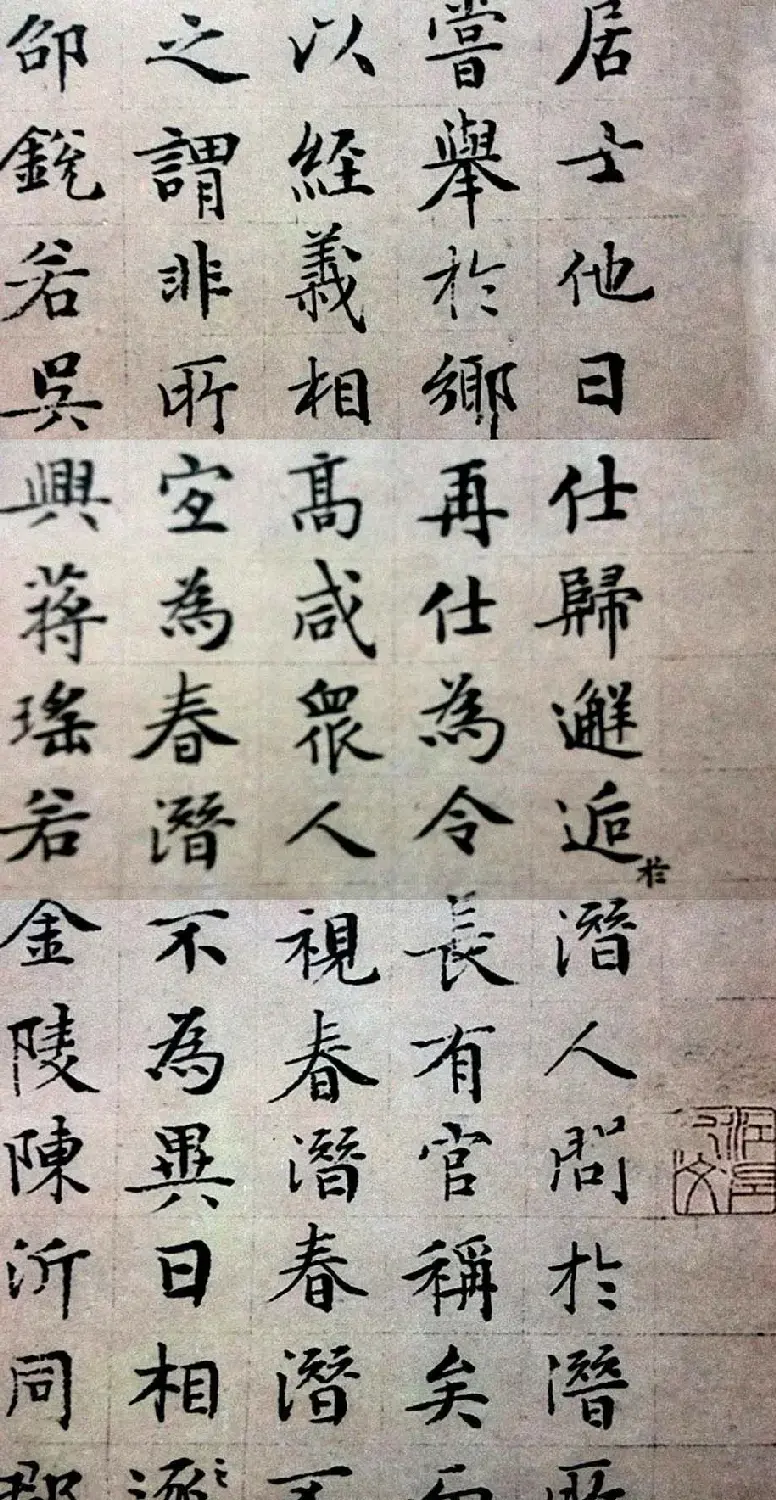 居士他日仕歸邂逅於潛人問於潛所
嘗舉於鄉再仕為令長有官稱矣而
以經義相高咸眾人視春潛春潛不
之謂非所宜為春潛不為異日相逐之
邵銳若吳興蔣瑤若金陵陳沂同郡